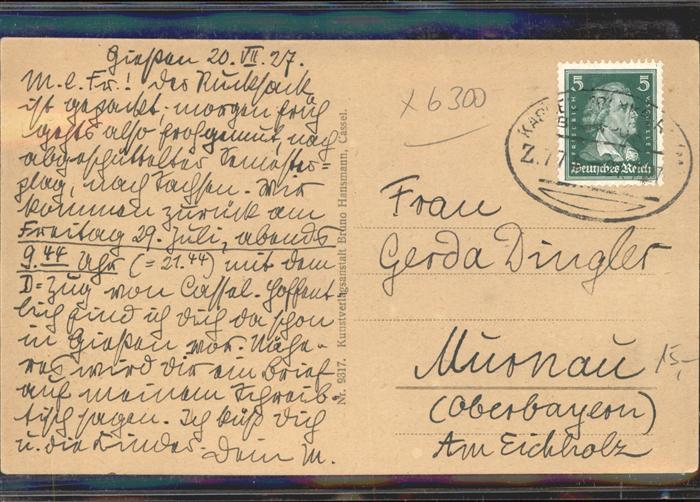 Gießen 20. VII. 27.
M. l. Fr.! Der Rucksack
ist gepackt, morgen früh
gehts also frohgemut, nach
abgeschüttelter Semester=
plag, nach Sachsen. Wir
kommen zurück am
Freitag 29. Juli, abends
9.44 Uhr (= 21.44) mit dem
D=Zug von Cassel. Hoffent=
lich find ich dich da schon
in Gießen vor. Nähe=
res wird dir ein Brief
auf meinem Schreib=
tisch sagen. Ich küß dich
u. die Kinder. Dein M.
Nr. 9317. Kunstverlagsanstalt Bruno Hansmann, Cassel.
x 6300
5 5
FRIEDRICH SCHILLER
Deutsches Reich
Z. 77
Frau
Gerda Dingler
Murnau
(Oberbayern)
Am Eichholz
15,-